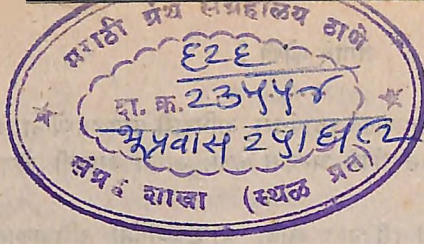 मराठी ग्रंथ संग्रहालय ठाणे
६२६
दा. क. २३५५४
भूप्रवास २५/६/८२
संग्रह शाखा (स्थळ प्रत)